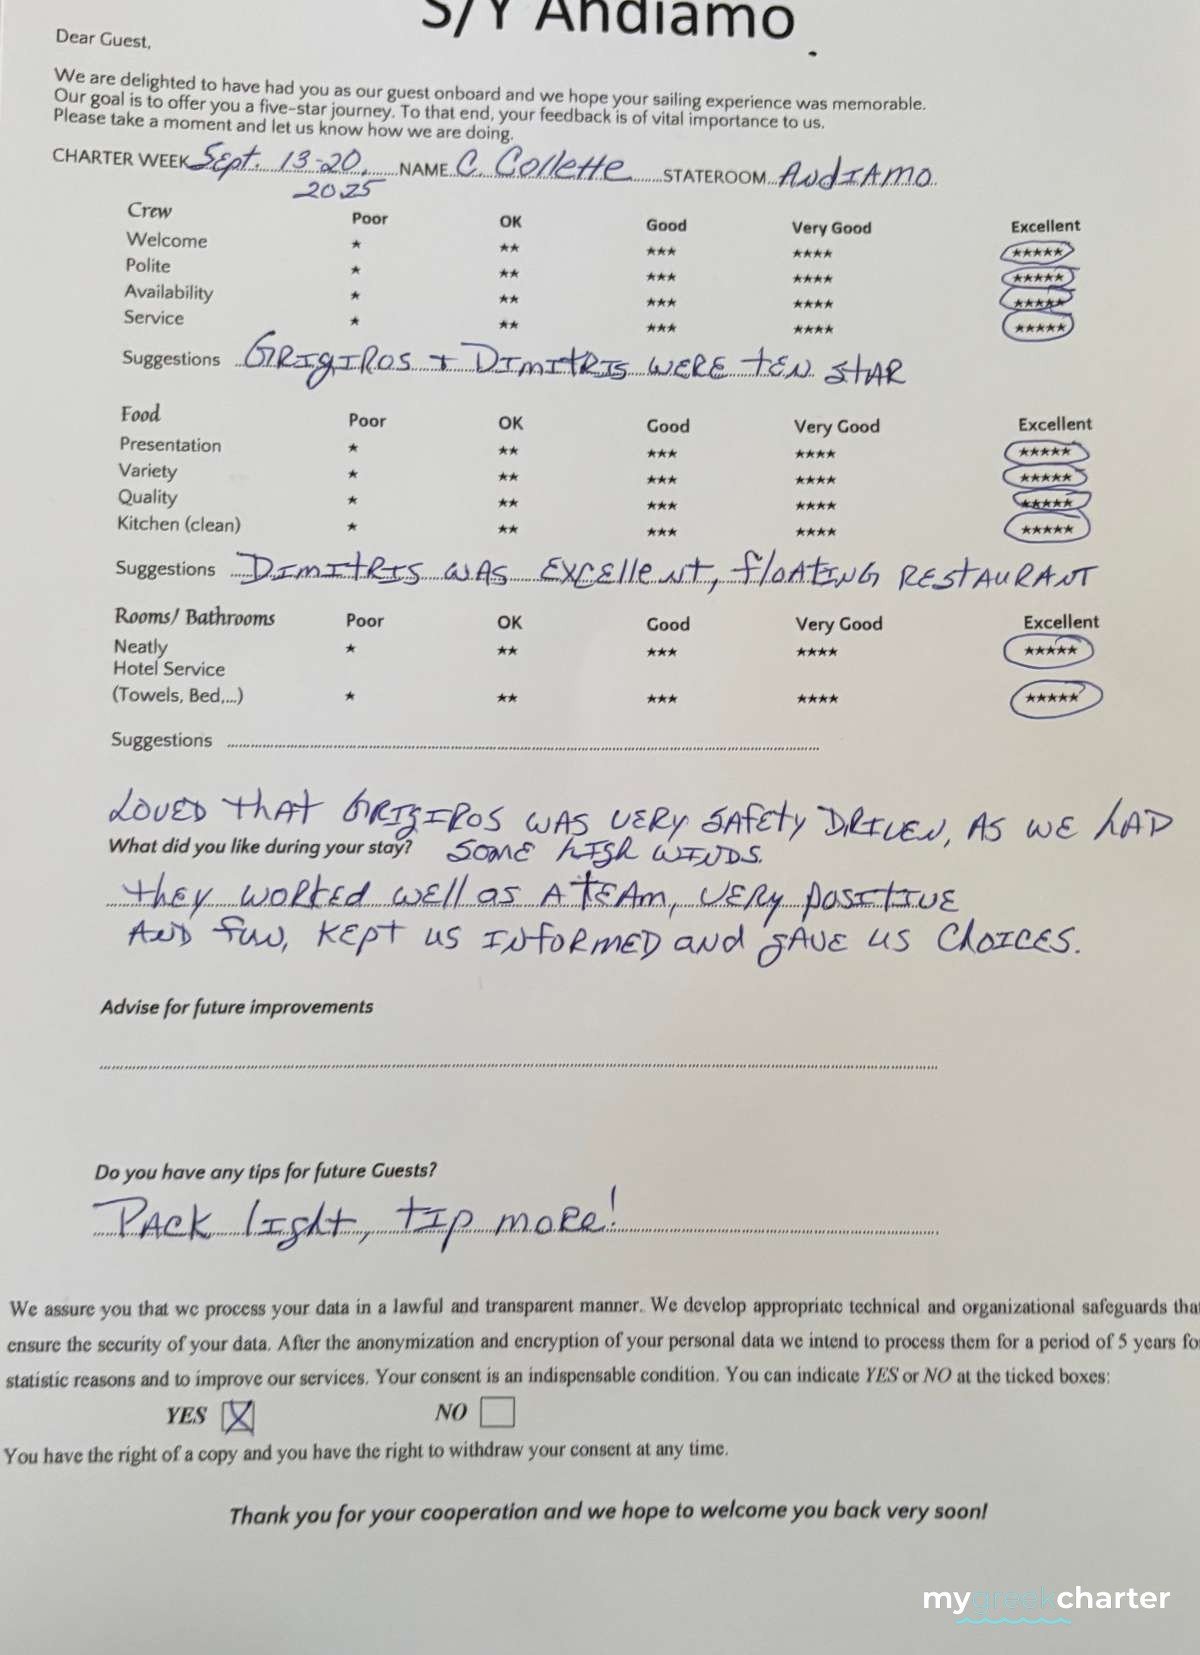 S/Y Andiamo
Dear Guest,
We are delighted to have had you as our guest onboard and we hope your sailing experience was memorable.
Our goal is to offer you a five-star journey. To that end, your feedback is of vital importance to us.
Please take a moment and let us know how we are doing.
CHARTER WEEK Sept. 13-20, NAME C. Collette STATEROOM ANDIAMO
2025
Crew Poor OK Good Very Good Excellent
Welcome ★ ★★ ★★★ ★★★★ ★★★★★
Polite ★ ★★ ★★★ ★★★★ ★★★★★
Availability ★ ★★ ★★★ ★★★★ ★★★★★
Service ★ ★★ ★★★ ★★★★ ★★★★★
Suggestions GRIGIROS + DIMITRIS WERE TEN STAR
Food Poor OK Good Very Good Excellent
Presentation ★ ★★ ★★★ ★★★★ ★★★★★
Variety ★ ★★ ★★★ ★★★★ ★★★★★
Quality ★ ★★ ★★★ ★★★★ ★★★★★
Kitchen (clean) ★ ★★ ★★★ ★★★★ ★★★★★
Suggestions DIMITRIS WAS EXCELLENT, FLOATING RESTAURANT
Rooms/ Bathrooms Poor OK Good Very Good Excellent
Neatly ★ ★★ ★★★ ★★★★ ★★★★★
Hotel Service
(Towels, Bed,...) ★ ★★ ★★★ ★★★★ ★★★★★
Suggestions
LOVED THAT GRIGIROS WAS VERY SAFETY DRIVEN, AS WE HAD
What did you like during your stay? SOME HIGH WINDS.
THEY WORKED WELL as A TEAM, VERY POSITIVE
AND FUN, KEPT US INFORMED and GAVE US CHOICES.
Advise for future improvements
Do you have any tips for future Guests?
PACK LIGHT, TIP MORE!
We assure you that we process your data in a lawful and transparent manner. We develop appropriate technical and organizational safeguards that
ensure the security of your data. After the anonymization and encryption of your personal data we intend to process them for a period of 5 years fo
statistic reasons and to improve our services. Your consent is an indispensable condition. You can indicate YES or NO at the ticked boxes:
YES X NO
You have the right of a copy and you have the right to withdraw your consent at any time.
Thank you for your cooperation and we hope to welcome you back very soon!
mygreekcharter